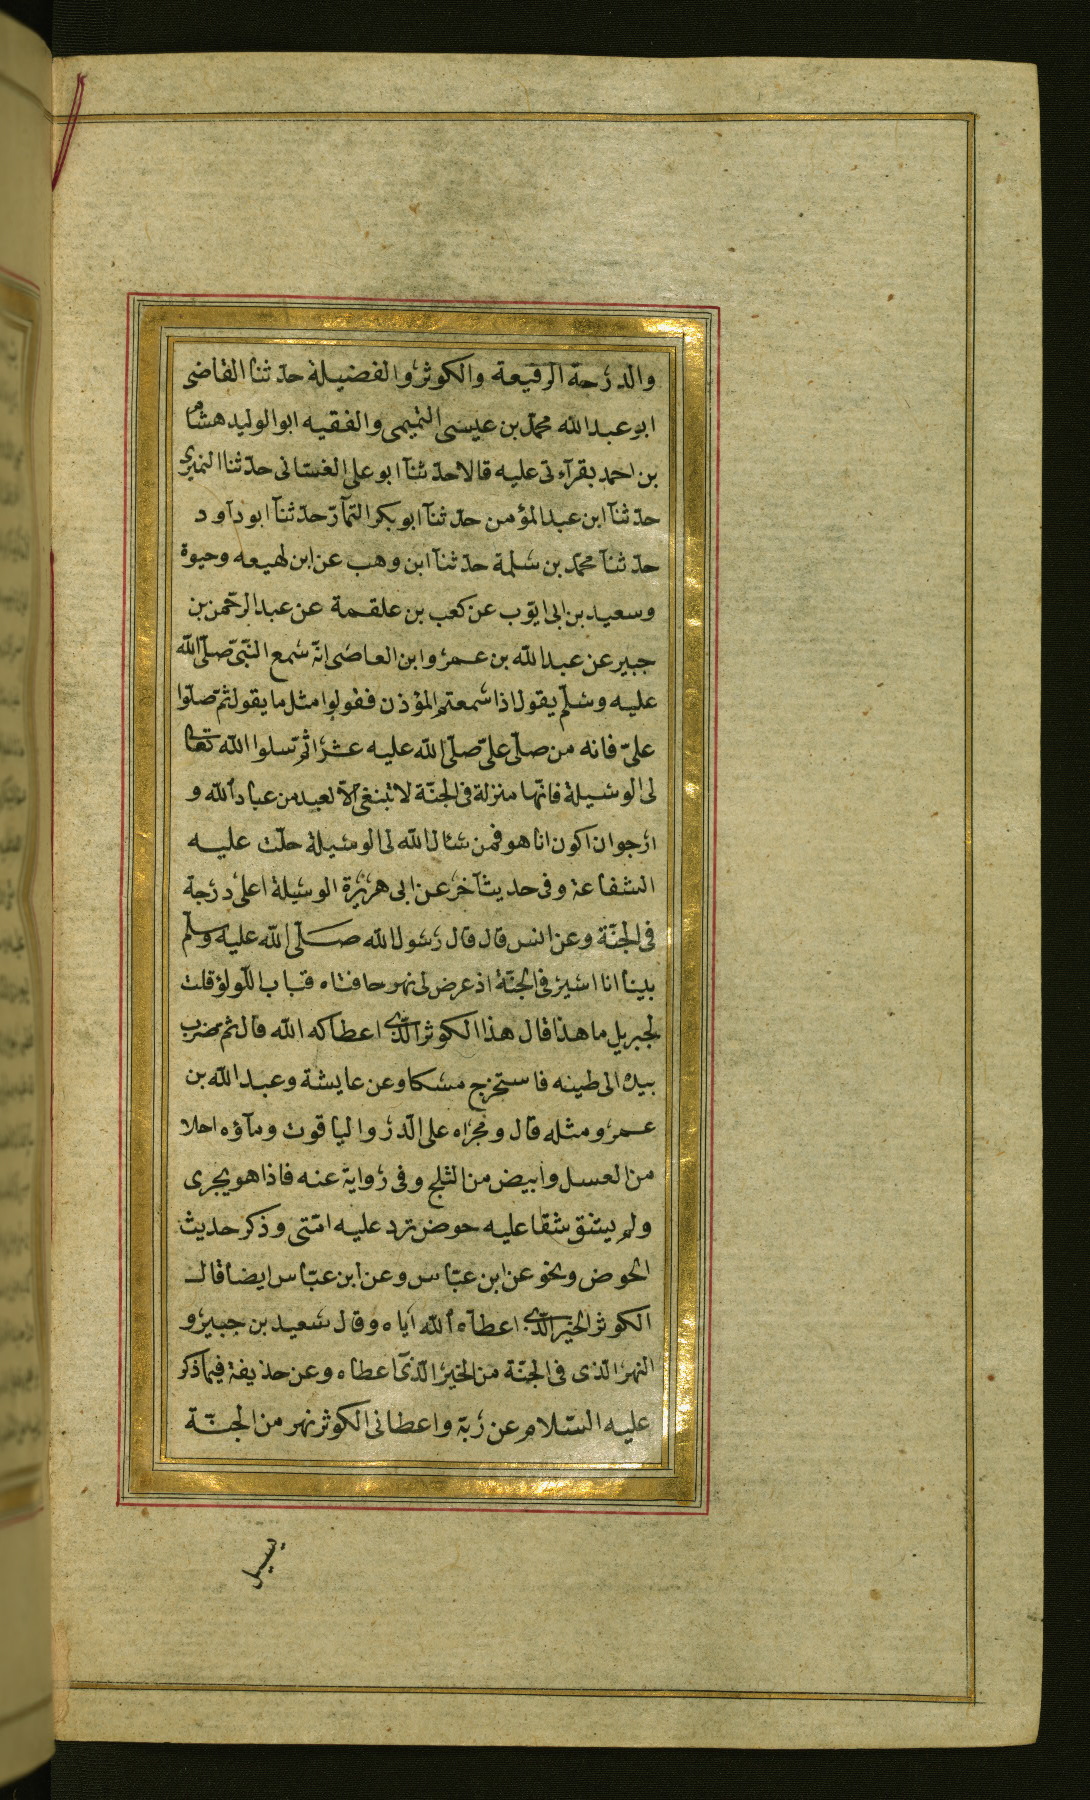 والدرجة الرفيعة والكوثر والفضيلة حدثنا القاضى
ابو عبد الله محمد بن عيسى التميمى والفقيه ابو الوليد هشام
بن احمد بقرآءتى عليه قالا حدثنآ ابو على الغسانى حدثنا النميرى
حدثنآ ابن عبد المؤمن حدثنآ ابو بكر التمآر حدثنآ ابو دآود
حدثنآ محمد بن سلمة حدثنآ ابن وهب عن ابن لهيعه وحيوة
وسعيد بن ابى ايوب عن كعب بن علقمة عن عبد الرحمن بن
جبير عن عبد الله بن عمرو ابن العاصى انه سمع النبى صلى الله
عليه وسلم يقول اذا سمعتم المؤذن فقولوا مثل ما يقول ثم صلوا
على فانه من صلى على صلى الله عليه عشرا ثم سلوا الله تعا
لى الوسيلة فانها منزلة فى الجنة لا تنبغى الا لعبد من عباد الله و
ارجو ان اكون انا هو فمن سئال الله لى الوسيلة حلت عليه
الشفاعة وفى حديث آخر عن ابى هريرة الوسيلة اعلى درجة
فى الجنة وعن انس قال قال رسول الله صلى الله عليه وسلم
بينا انا اسير فى الجنة اذ عرض لى نهر حافتاه قباب اللولؤ قلت
لجبريل ما هذا قال هذا الكوثر الذى اعطاكه الله قال ثم ضرب
بيده الى طينه فاستخرج مسكا وعن عايشة وعبد الله بن
عمرو مثله قال ومجراه على الدر والياقوت ومآؤه احلا
من العسل وابيض من الثلج وفى رواية عنه فاذا هو يجرى
ولم يشق شقا عليه حوض ترد عليه امتى وذكر حديث
الحوض ونحو عن ابن عباس وعن ابن عباس ايضا قال
الكوثر الخير الذى اعطاه الله اياه وقال سعيد بن جبير و
النهر الذى فى الجنة من الخير الذى اعطاه وعن حذيفة فيما ذكر
عليه السلام عن ربه واعطانى الكوثر نهر من الجنة
يسيل